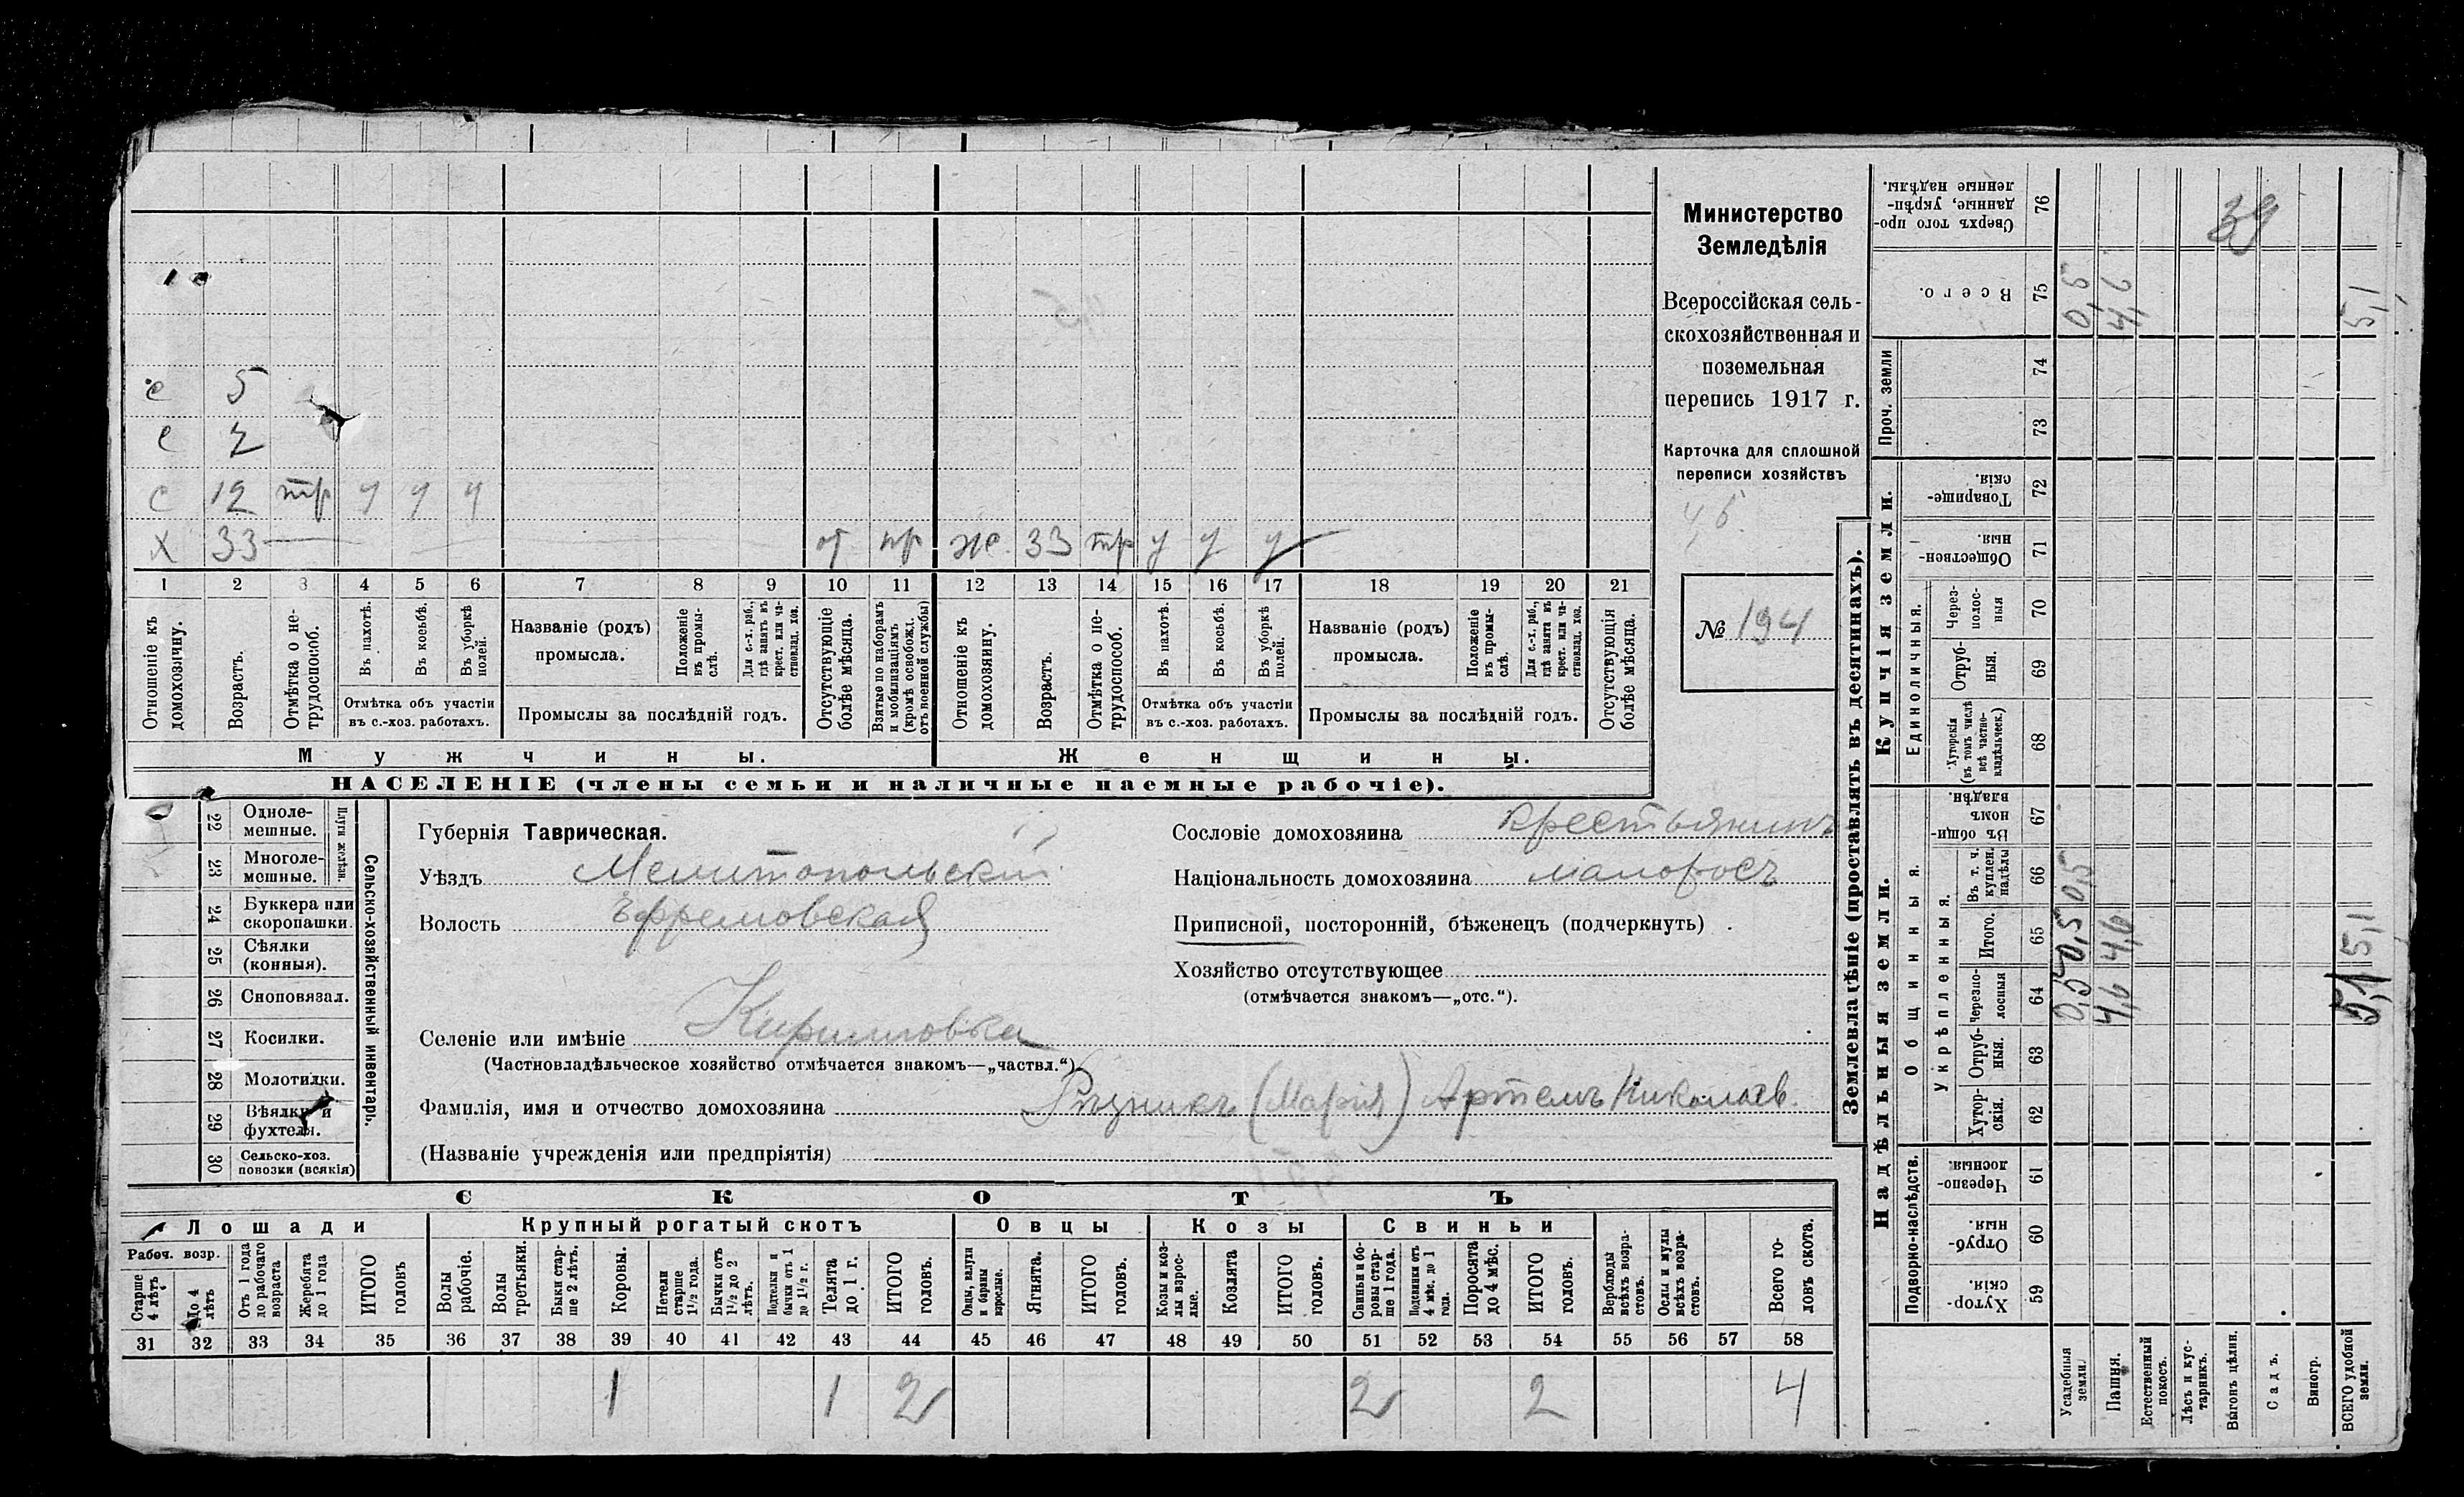 Министерство
Земледѣлія
Всероссійская сель-
скохозяйственная и
поземельная
перепись 1917 г.
Карточка для сплошной
переписи хозяйствъ
№ 194
е 5
е 7
с 12 тр у у у
х 33 от пр ж. 33 тр у у у
1 2 3 4 5 6 7 8 9 10 11 12 13 14 15 16 17 18 19 20 21
Отношеніе къ домохозяину.
Возрастъ.
Отмѣтка о не-трудоспособ.
Въ пахотѣ.
Въ косьбѣ.
Въ уборкѣ полей.
Отмѣтка объ участіи
въ с.-хоз. работахъ.
Названіе (родъ)
промысла.
Положеніе въ промы-слѣ.
Для с.-х. раб., гдѣ занятъ въ крест. или ча-стновлад. хоз.
Промыслы за послѣдній годъ.
Отсутствующіе болѣе мѣсяца.
Взятые по наборамъ и мобилизаціямъ (кромѣ освобожд. отъ военной службы)
Отношеніе къ домохозяину.
Возрастъ.
Отмѣтка о не-трудоспособ.
Въ пахотѣ.
Въ косьбѣ.
Въ уборкѣ полей.
Отмѣтка объ участіи
въ с.-хоз. работахъ.
Названіе (родъ)
промысла.
Положеніе въ промы-слѣ.
Для с.-х. раб., гдѣ занята въ крест. или ча-стновлад. хоз.
Промыслы за послѣдній годъ.
Отсутствующія болѣе мѣсяца.
Мужчины.
Женщины.
НАСЕЛЕНІЕ (члены семьи и наличные наемные рабочіе).
Сельско-хозяйственный инвентарь.
Плуги желѣзн.
22 Одноле-мешные.
23 Многоле-мешные.
24 Буккера или скоропашки.
25 Сѣялки (конныя).
26 Сноповязал.
27 Косилки.
28 Молотилки.
29 Вѣялки и фухтеля.
30 Сельско-хоз. повозки (всякія)
Губернія Таврическая.
Уѣздъ Мелитопольскій
Волость Ефремовская
Селеніе или имѣніе Кирилловка
(Частновладѣльческое хозяйство отмѣчается знакомъ—„частвл.“).
Фамилія, имя и отчество домохозяина Рѣзникъ (Марія) Артемъ Николаев.
(Названіе учрежденія или предпріятія)
Сословіе домохозяина крестьянинъ
Національность домохозяина малоросъ
Приписной, посторонній, бѣженецъ (подчеркнуть)
Хозяйство отсутствующее
(отмѣчается знакомъ—„отс.“).
СКОТЪ
Лошади
Крупный рогатый скотъ
Овцы
Козы
Свиньи
Рабоч. возр.
Старше 4 лѣтъ
До 4 лѣтъ
Отъ 1 года до рабочаго возраста
Жеребята до 1 года
ИТОГО головъ
Волы рабочіе.
Волы третьяки.
Быки стар-ше 2 лѣтъ.
Коровы.
Нетели старше 1½ года.
Бычки отъ 1½ до 2 лѣтъ.
Подтелки и бычки отъ 1 до 1½ г.
Телята до 1 г.
ИТОГО головъ.
Овцы, валухи и бараны взрослые.
Ягнята.
ИТОГО головъ.
Козы и коз-лы взрос-лые.
Козлята
ИТОГО головъ.
Свиньи и бо-ровы стар-ше 1 года.
Подсвинки отъ 4 мѣс. до 1 года.
Поросята до 4 мѣс.
ИТОГО головъ.
Верблюды всѣхъ возра-стовъ.
Ослы и мулы всѣхъ возра-стовъ.
Всего го-ловъ скота.
31 32 33 34 35 36 37 38 39 40 41 42 43 44 45 46 47 48 49 50 51 52 53 54 55 56 57 58
1 1 2 2 2 4
Землевладѣніе (проставлять въ десятинахъ).
Купчія земли.
Надѣльныя земли.
Сверхъ того про-данные, укрѣп-ленные надѣлы. 76
39
Всего. 75 0,5 4,6 5,1
Проч. земли 74 73
Товарище-скія. 72
Обществен-ныя. 71
Единоличныя.
Через-полос-ныя 70
Отруб-ныя. 69
Хуторскія (въ томъ числѣ всѣ частно-владѣльческ.) 68
Общинныя.
Въ общи-номъ владѣн. 67
Укрѣпленныя.
Въ т. ч. куплен. надѣлы 66 0,5
Итого. 65 0,5 4,6 5,1
Черезпо-лосныя 64 0,5 4,6 5,1
Отруб-ныя. 63
Хутор-скія. 62
Подворно-наслѣдств.
Черезпо-лосныя. 61
Отруб-ныя. 60
Хутор-скія. 59
Усадебныя земли.
Пашня.
Естественный покосъ.
Лѣсъ и кус-тарникъ.
Выгонъ цѣлин.
Садъ.
Виногр.
ВСЕГО удобной земли.